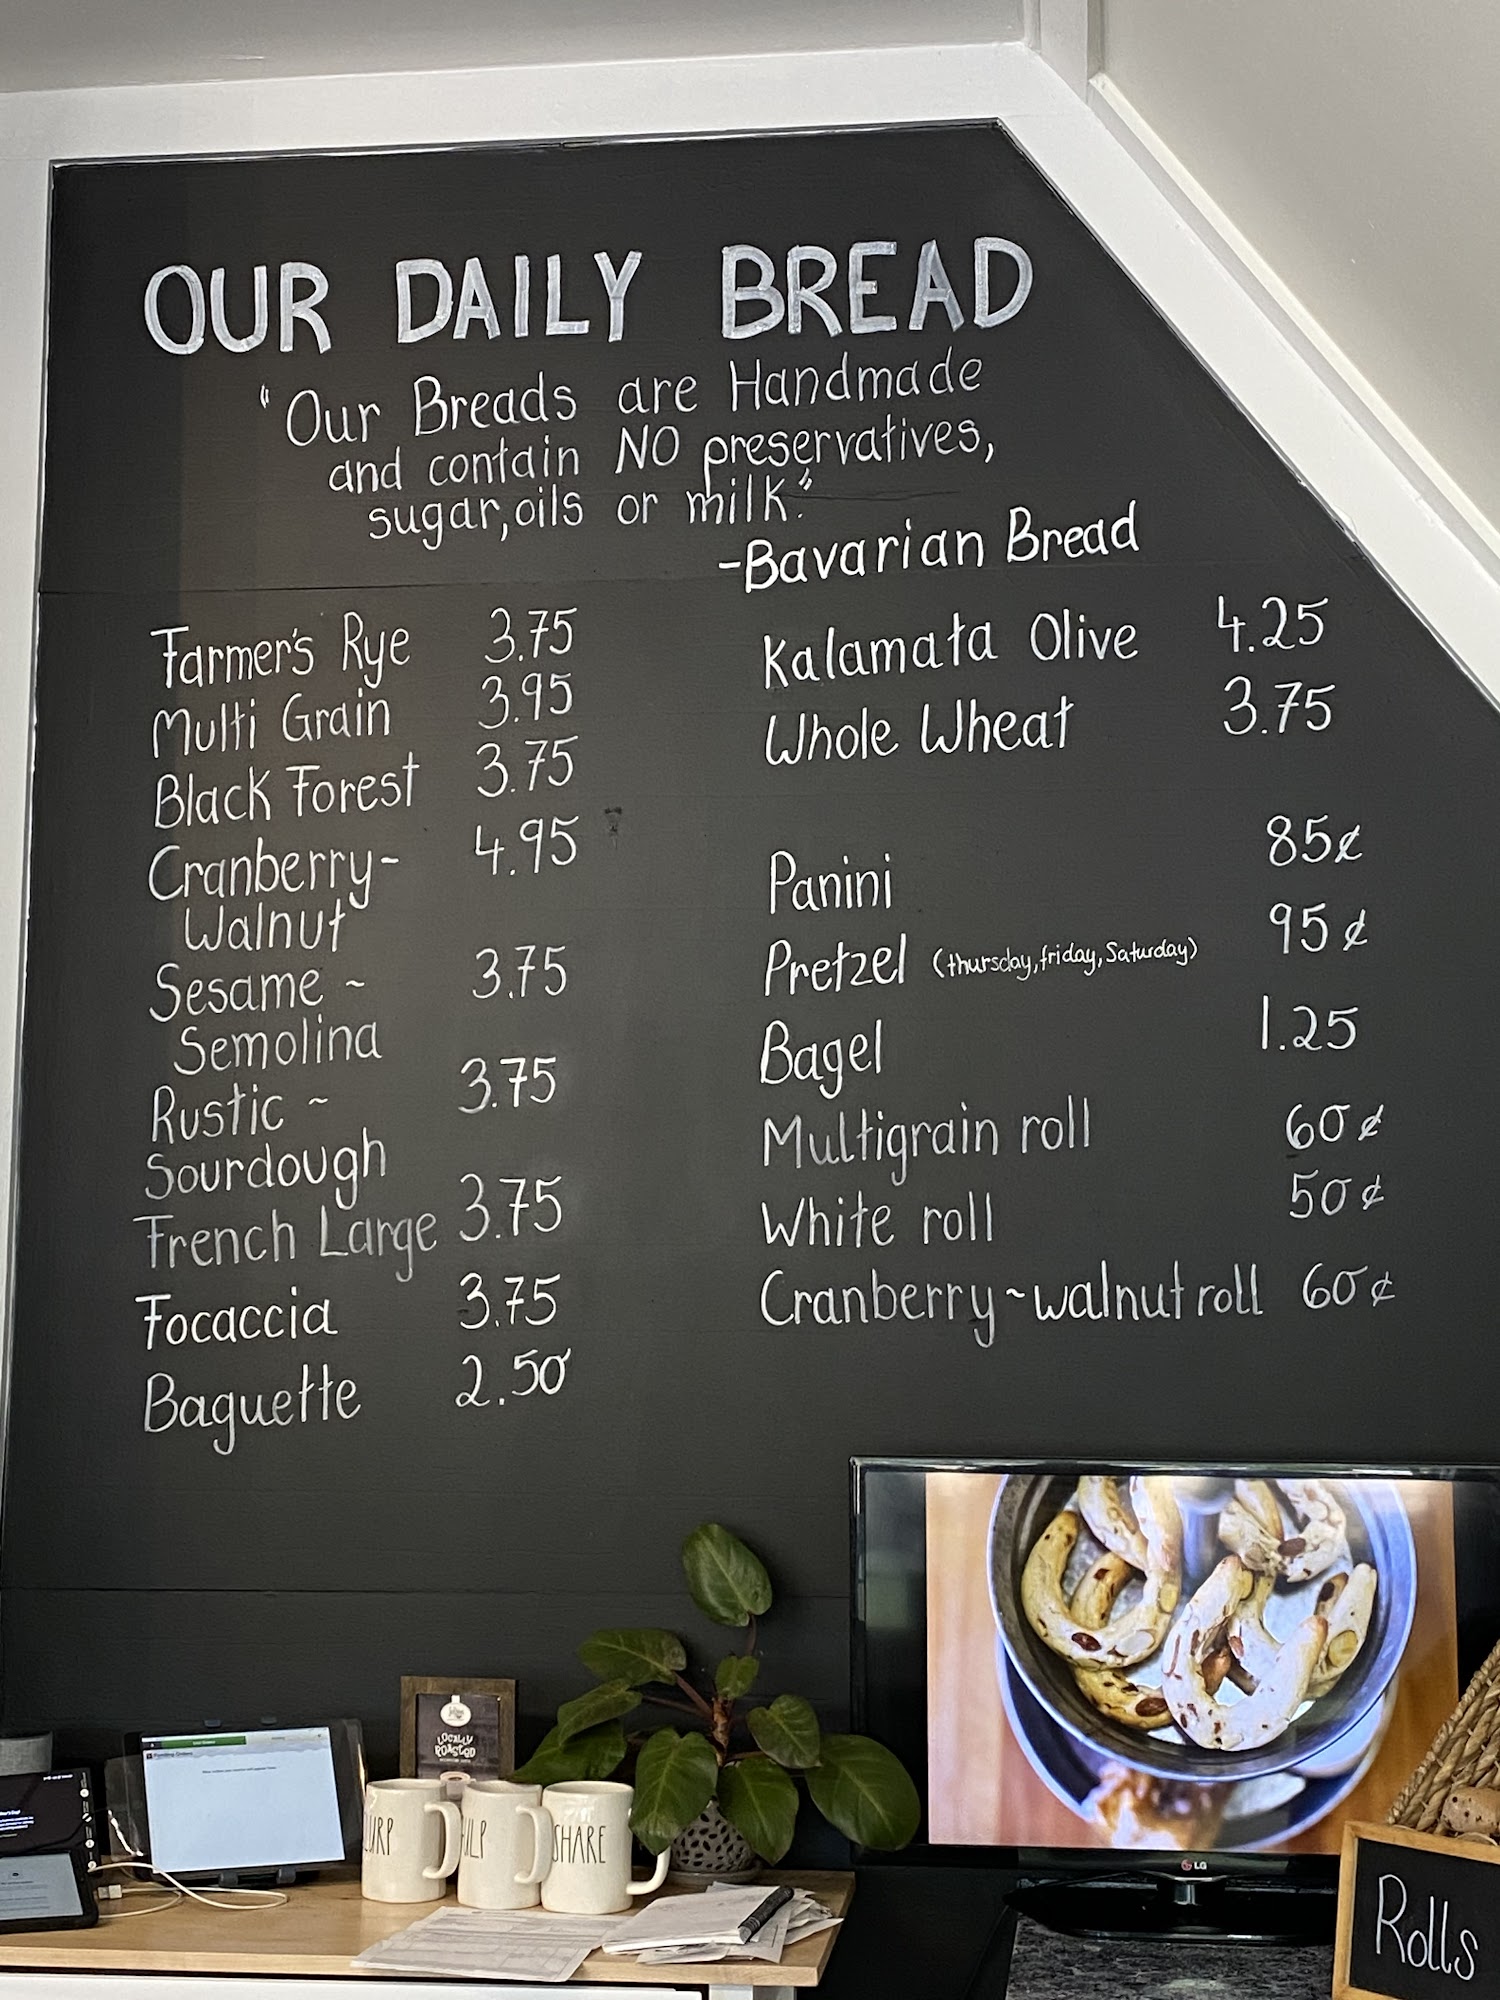 OUR DAILY BREAD
"Our Breads are Handmade
and contain NO preservatives,
sugar, oils or milk."
-Bavarian Bread
Farmer's Rye 3.75
Multi Grain 3.95
Black Forest 3.75
Cranberry~ 4.95
Walnut
Sesame ~ 3.75
Semolina
Rustic ~ 3.75
Sourdough
French Large 3.75
Focaccia 3.75
Baguette 2.50
Kalamata Olive 4.25
Whole Wheat 3.75
Panini 85¢
Pretzel (thursday, friday, Saturday) 95¢
Bagel 1.25
Multigrain roll 60¢
White roll 50¢
Cranberry~walnut roll 60¢
LOCALLY
ROASTED
SHARE
LG
Rolls